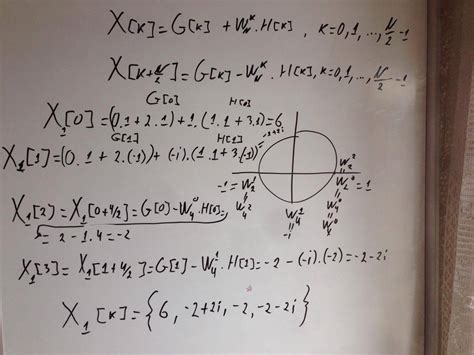 X[k] = G[k] + W_N^k · H[k], k=0,1,...,N/2 -1
X[k+N/2] = G[k] - W_N^k · H[k], k=0,1,...,N/2 -1
G[0] H[0]
X_1[0] = (0.1 + 2.1) + 1.(1.1 + 3.1) = 6
G[1] H[1]
X_1[1] = (0.1 + 2.(-1)) + (-i).(1.1 + 3.(-1)) = -2+2i
-1 = W_2^1 W_2^0 = 1
W_4^2 W_4^1 W_4^0
X_1[2] = X_1[0+4/2] = G[0] - W_4^0 · H[0] =
= 2 - 1.4 = -2
X_1[3] = X_1[1+4/2] = G[1] - W_4^1 · H[1] = -2 - (-i).(-2) = -2-2i
X_1[k] = {6, -2+2i, -2, -2-2i}